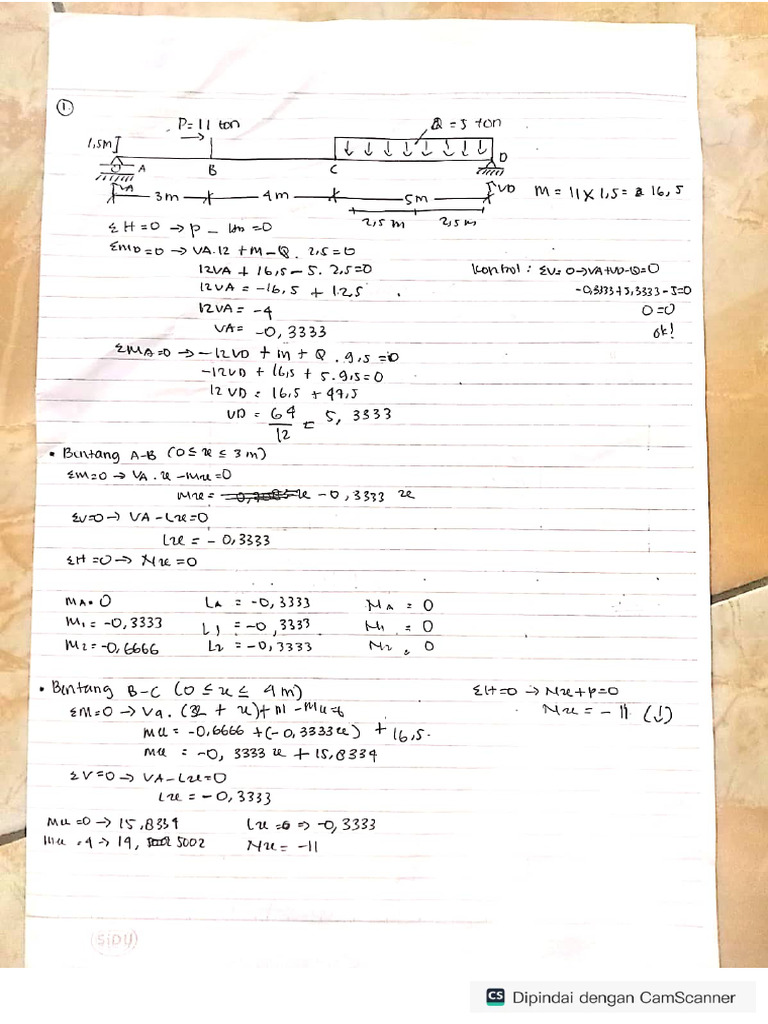 1.
P = 11 ton
Q = 5 ton
1,5m
A B C D
VA VD
3m 4m 5m
2,5 m 2,5 m
M = 11 x 1,5 = 16,5
ΣH=0 → P - =0
ΣMD=0 → VA.12 + M - Q . 2,5=0
12VA + 16,5 - 5. 2,5=0
12VA = -16,5 + 12,5
12VA = -4
VA= -0,3333
Kontrol : ΣV=0→VA+VD-Q=0
-0,3333+5,3333-5=0
0=0
ok!
ΣMA=0 → -12VD + M + Q . 9,5=0
-12VD + 16,5 + 5.9,5=0
12 VD = 16,5 + 47,5
VD = 64/12 = 5,3333
• Bintang A-B (0 ≤ x ≤ 3m)
ΣM=0 → VA.x - Mx=0
Mx = -0,3333 x
ΣV=0→ VA-Lx=0
Lx = -0,3333
ΣH=0→ Nx=0
MA= 0 LA = -0,3333 NA = 0
M1 = -0,3333 L1 = -0,3333 N1 = 0
M2 = -0,6666 L2 = -0,3333 N2 = 0
• Bentang B-C (0 ≤ x ≤ 4m)
ΣH=0 → Nx+P=0
Nx = -11 (↓)
ΣM=0 → Va. ( + x)+M-Mx=
Mx = -0,6666 +(-0,3333x) + 16,5
Mx = -0,3333x + 15,8334
ΣV=0 → VA-Lx=0
Lx = -0,3333
Mx=0 → 15,8334 Lx=0 => -0,3333
Mx=4 → 14,5002 Nx = -11
SIDU
CS Dipindai dengan CamScanner